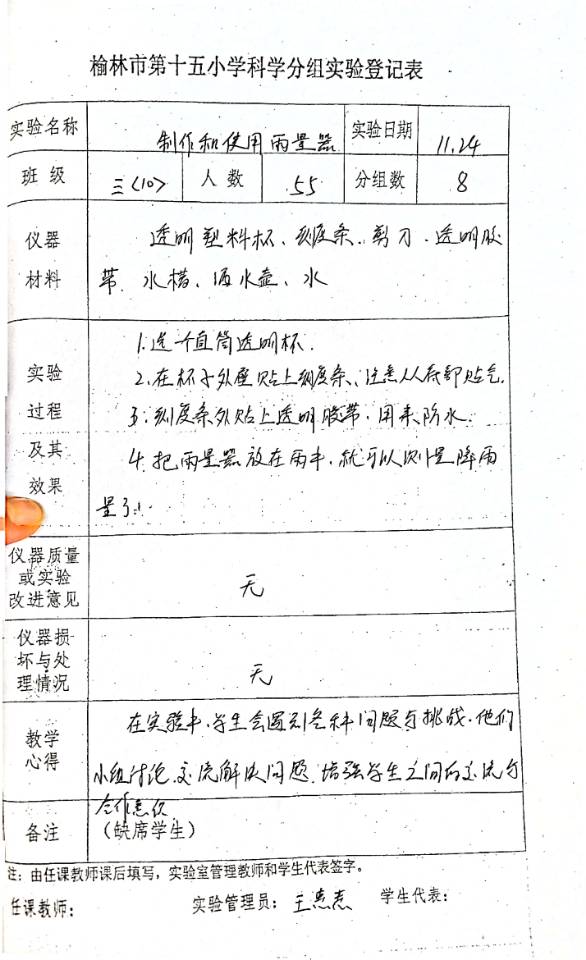 榆林市第十五小学科学分组实验登记表
实验名称 制作和使用雨量器 实验日期 11.24
班级 三<10> 人数 55 分组数 8
仪器材料 透明塑料杯、刻度条、剪刀、透明胶
带、水槽、洒水壶、水
实验过程及其效果
1.选一个直筒透明杯.
2.在杯子外壁贴上刻度条、注意从底部贴气.
3.刻度条外贴上透明胶带.用来防水.
4.把雨量器放在雨中.就可以测量降雨
量了.
仪器质量或实验改进意见 无
仪器损坏与处理情况 无
教学心得 在实验中.学生会遇到各种问题与挑战.他们
小组讨论.交流解决问题.培强学生之间的交流与
合作意识
备注 (缺席学生)
注：由任课教师课后填写，实验室管理教师和学生代表签字。
任课教师： 实验管理员： 学生代表：